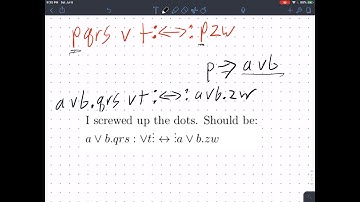 pqrs v t:<->: pzw
p -> avb
avb.qrs v t:<->: avb.zw
I screwed up the dots. Should be:
a ∨ b.qrs : ∨t⁝ ↔ ⁝a ∨ b.zw